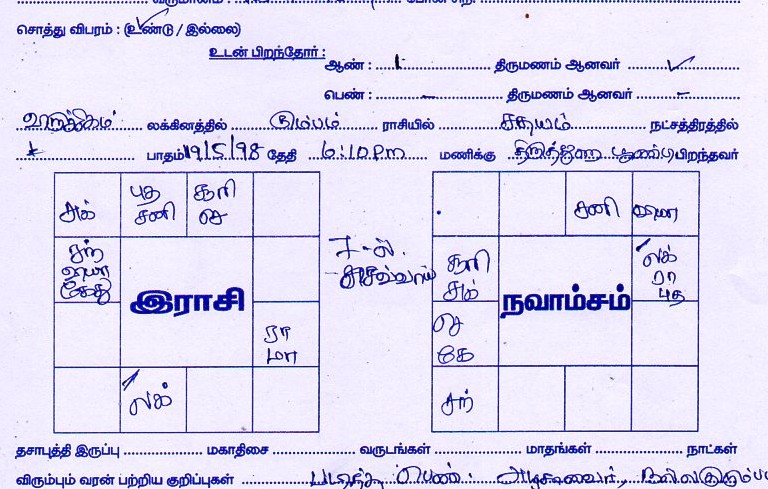 சொத்து விபரம் : (உண்டு / இல்லை)
உடன் பிறந்தோர் :
ஆண் : 1 திருமணம் ஆனவர் ✓
பெண் : – திருமணம் ஆனவர் –
லக்கினத்தில் கும்பம் ராசியில் சதயம் நட்சத்திரத்தில்
பாதம் 19/5/98 தேதி 6:10 Pm மணிக்கு பிறந்தவர்
புத சூரி
சுக் சனி செ
சந்
கேது
இராசி
ரா
மா
லக்
7-ல்
செவ்வாய்
சனி
சூரி லக்
சுக் ரா
புத
நவாம்சம்
செ
கே
சந்
தசாபுத்தி இருப்பு மகாதிசை வருடங்கள் மாதங்கள் நாட்கள்
விரும்பும் வரன் பற்றிய குறிப்புகள் படித்த பெண்